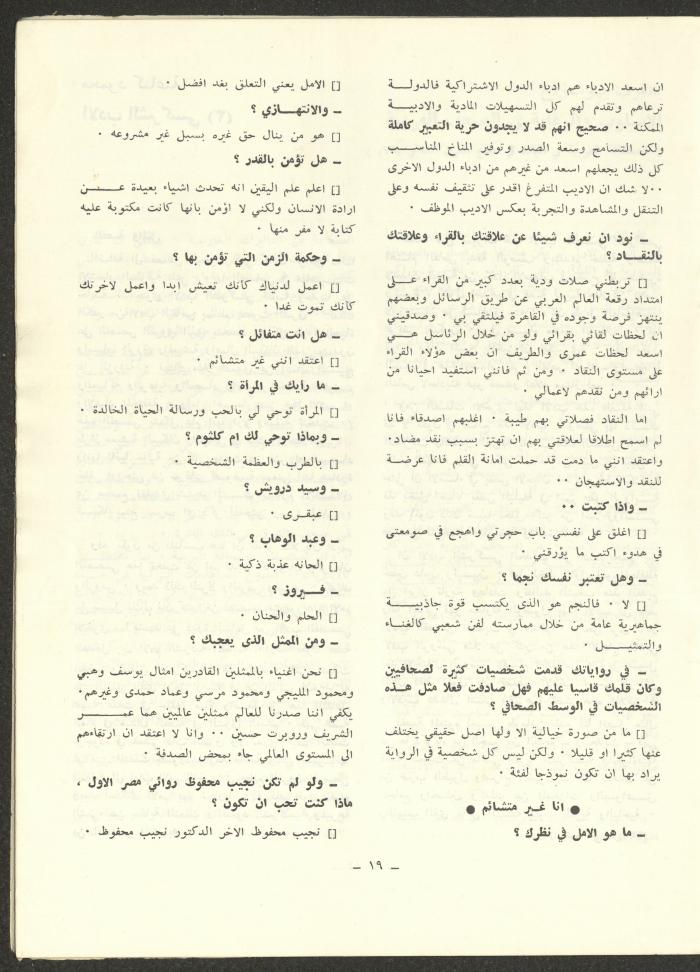 ان اسعد الادباء هم ادباء الدول الاشتراكية فالدولـــة
ترعاهم وتقدم لهم كل التسهيلات المادية والادبيــة
الممكنة ٠٠ صحيح انهم قد لا يجدون حرية التعبير كاملة
ولكن التسامح وسعة الصدر وتوفير المناخ المناســب
كل ذلك يجعلهم اسعد من غيرهم من ادباء الدول الاخرى
٠٠لا شك ان الاديب المتفرغ اقدر على تثقيف نفسه وعلى
التنقل والمشاهدة والتجربة بعكس الاديب الموظف ٠
ــ نود ان نعرف شيئا عن علاقتك بالقراء وعلاقتك
بالنقــاد ؟
[] تربطني صلات ودية بعدد كبير من القراء علــى
امتداد رقعة العالم العربي عن طريق الرسائل وبعضهم
ينتهز فرصة وجوده في القاهرة فيلتقي بي ٠ وصدقيني
ان لحظات لقائي بقرائي ولو من خلال الرئاسل هــي
اسعد لحظات عمرى والطريف ان بعض هؤلاء القراء
على مستوى النقاد ٠ ومن ثم فانني استفيد احيانا من
ارائهم ومن نقدهم لاعمالي ٠
اما النقاد فصلاتي بهم طيبة ٠ اغلبهم اصدقاء فانا
لم اسمح اطلاقا لعلاقتي بهم ان تهتز بسبب نقد مضاد٠
واعتقد انني ما دمت قد حملت امانة القلم فانا عرضــة
للنقد والاستهجان ٠٠
ــ واذا كتبت ٠٠
[] اغلق على نفسي باب حجرتي واهجع في صومعتى
في هدوء اكتب ما يؤرقني ٠
ــ وهل تعتبر نفسك نجما ؟
[] لا ٠ فالنجم هو الذى يكتسب قوة جاذبيــــة
جماهيرية عامة من خلال ممارسته لفن شعبي كالغنــاء
والتمثيـــل ٠
ــ في رواياتك قدمت شخصيات كثيرة لصحافيين
وكان قلمك قاسيا عليهم فهل صادفت فعلا مثل هــذه
الشخصيات في الوسط الصحافي ؟
[] ما من صورة خيالية الا ولها اصل حقيقي يختلف
عنها كثيرا او قليلا ٠ ولكن ليس كل شخصية في الرواية
يراد بها ان تكون نموذجا لفئة ٠
● انا غــير متشائم ●
ــ ما هو الامل في نظرك ؟
[] الامل يعني التعلق بغد افضل ٠
ــ والانتهــازي ؟
[] هو من ينال حق غيره بسبل غير مشروعه ٠
ــ هل تؤمن بالقدر ؟
[] اعلم علم اليقين انه تحدث اشياء بعيدة عــــن
ارادة الانسان ولكني لا اؤمن بانها كانت مكتوبة عليه
كتابة لا مفر منها ٠
ــ وحكمة الزمن التي تؤمن بها ؟
[] اعمل لدنياك كأنك تعيش ابدا واعمل لاخرتك
كأنك تموت غدا ٠
ــ هل انت متفائل ؟
[] اعتقد انني غير متشائم ٠
ــ ما رأيك في المرأة ؟
[] المرأة توحي لي بالحب ورسالة الحياة الخالدة ٠
ــ وبماذا توحي لك ام كلثوم ؟
[] بالطرب والعظمة الشخصية ٠
ــ وسيد درويش ؟
[] عبقــرى ٠
ــ وعبد الوهاب ؟
[] الحانه عذبة ذكية ٠
ــ فــيروز ؟
[] الحلم والحنان ٠
ــ ومن الممثل الذى يعجبك ؟
[] نحن اغنياء بالممثلين القادرين امثال يوسف وهبي
ومحمود المليجي ومحمود مرسي وعماد حمدى وغيرهم٠
يكفي اننا صدرنا للعالم ممثلين عالميين هما عمـــــر
الشريف وروبرت حسين ٠٠ وانا لا اعتقد ان ارتقاءهم
الى المستوى العالمي جاء بمحض الصدفة ٠
ــ ولو لم تكن نجيب محفوظ روائي مصر الاول ،
ماذا كنت تحب ان تكون ؟
[] نجيب محفوظ الاخر الدكتور نجيب محفوظ ٠
ــ ١٩ ــ